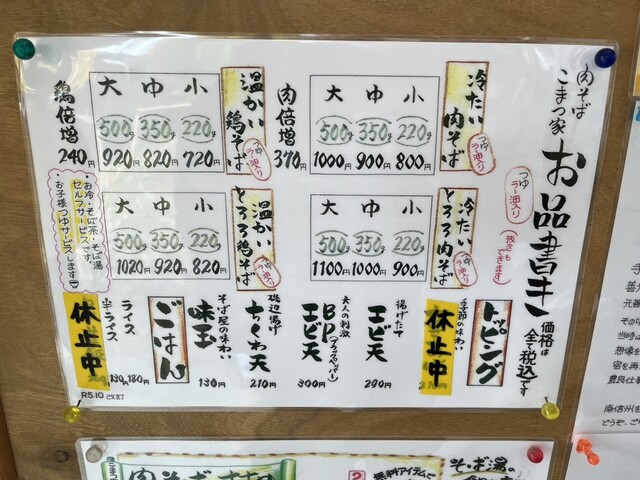 肉そば
こまつ家
お品書き
価格は
全て税込です
つゆ
ラー油入り
(抜きも
できます)
冷たい肉そば
つゆ
ラー油入り
大 中 小
500g 350g 220g
1000円 900円 800円
肉倍増
370円
温かい鶏そば
つゆ
ラー油入り
大 中 小
500g 350g 220g
920円 820円 720円
鶏倍増
240円
冷たい
とろろ肉そば
つゆ
ラー油入り
大 中 小
500g 350g 220g
1100円 1000円 900円
温かい
とろろ鶏そば
つゆ
ラー油入り
大 中 小
500g 350g 220g
1020円 920円 820円
お冷・そば茶・そば湯
セルフサービスです。
お子様つゆサービスします
トッピング
季節の味わい
休止中
揚げたて
エビ天
290円
大人の刺激
BP(ブラックペッパー)
エビ天
300円
磯辺揚げ
ちくわ天
210円
そば屋の味わい
味玉
130円
ごはん
ライス
180円
半ライス
130円
休止中
R5.10 改訂
肉そば
無料アイテムで
そば湯の